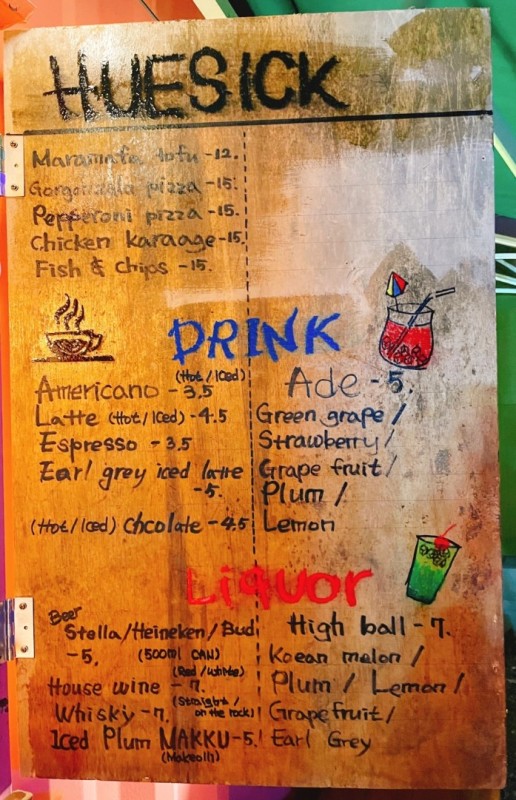 HUESICK
Maramafa tofu - 12.
Gorgonzola pizza - 15.
Pepperoni pizza - 15.
Chicken karaage - 15.
Fish & chips - 15.
DRINK
(Hot/Iced)
Americano - 3.5
Latte (Hot/Iced) - 4.5
Espresso - 3.5
Earl grey iced latte
- 5.
(Hot/Iced) Chcolate - 4.5
Ade - 5.
Green grape /
Strawberry /
Grape fruit /
Plum /
Lemon
Liquor
Beer
Stella/Heineken/Bud
- 5. (500ml CAN)
(Red/White)
House wine - 7.
(Straight/
on the rock)
Whisky - 7.
Iced Plum MAKKU - 5.
(Makeolli)
High ball - 7.
Koean melon /
Plum / Lemon /
Grapefruit /
Earl Grey